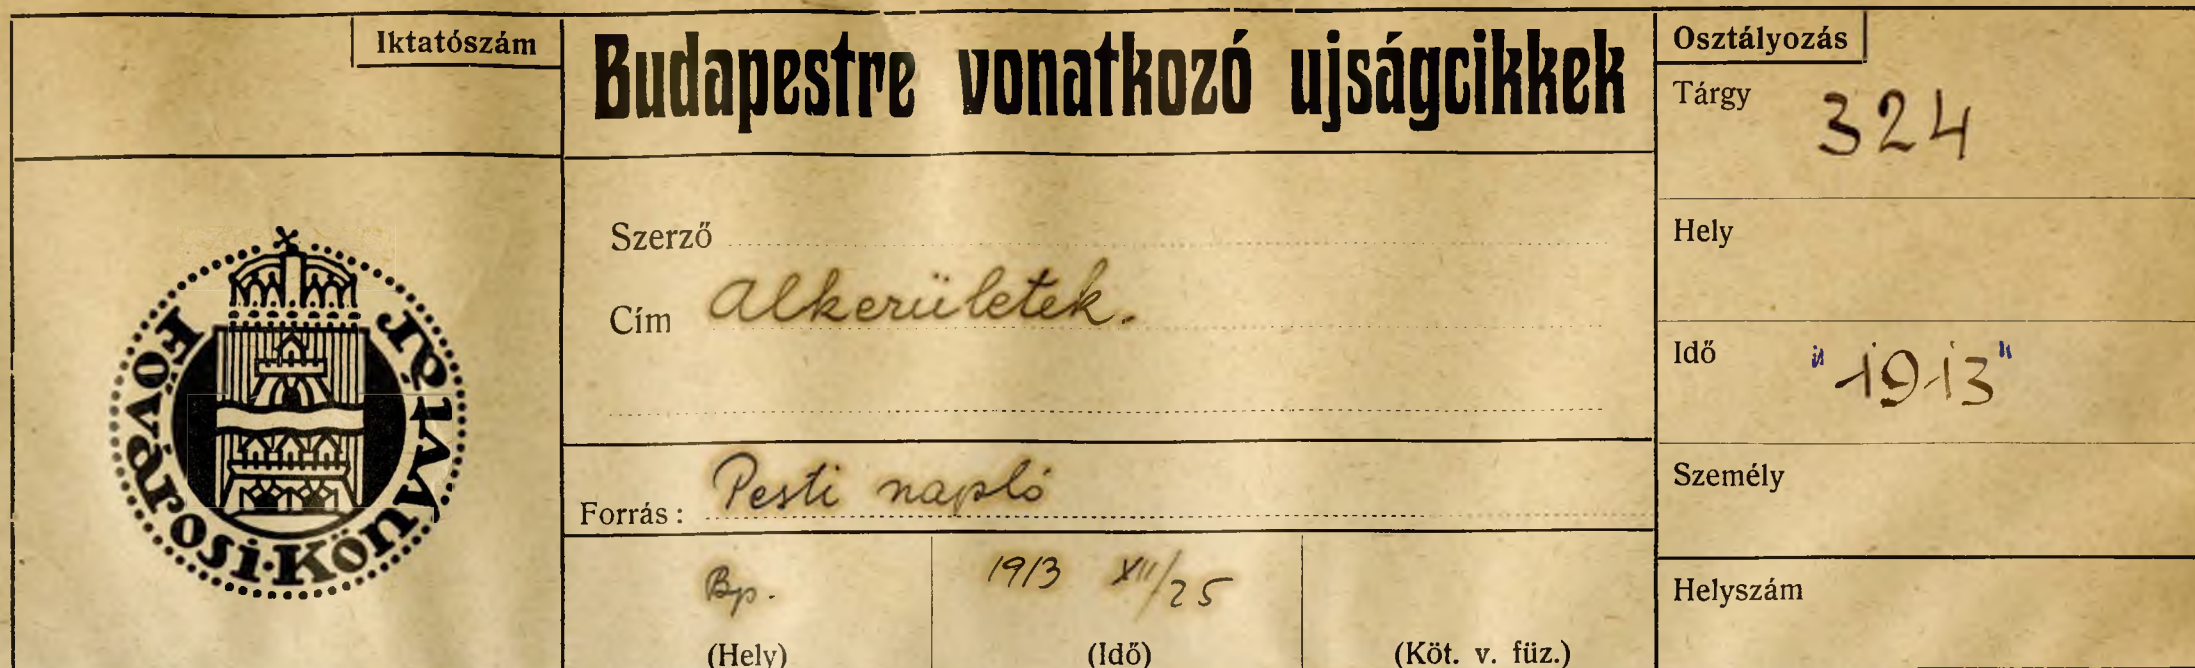 Iktatószám
Fővárosi·Könyvtár
Budapestre vonatkozó ujságcikkek
Szerző
Cím Alkerületek.
Forrás: Pesti napló
Bp. 1913 XII/25
(Hely) (Idő) (Köt. v. füz.)
Osztályozás
Tárgy 324
Hely
Idő "1913"
Személy
Helyszám